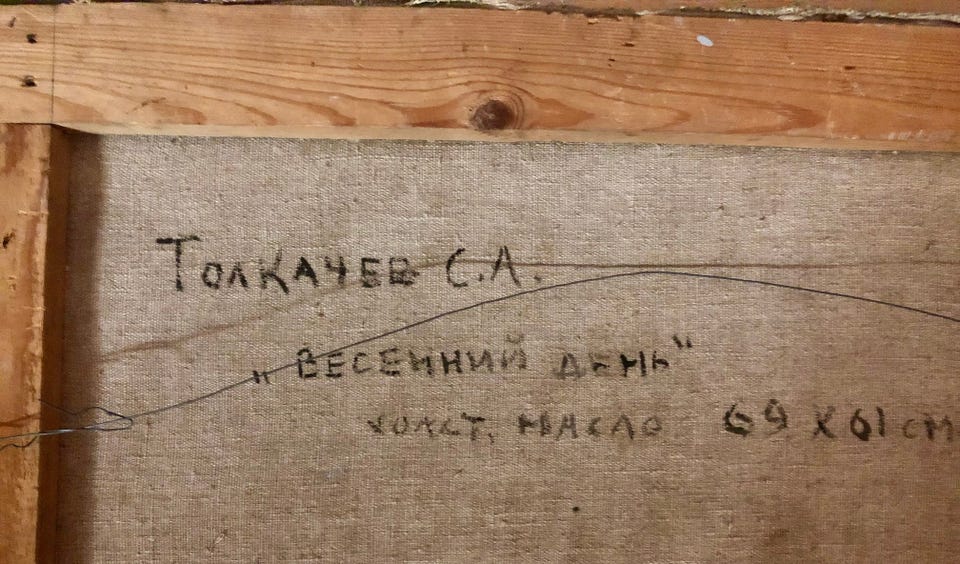 Толкачев С.А.
„Весенний день"
холст, масло 69 х 61 см